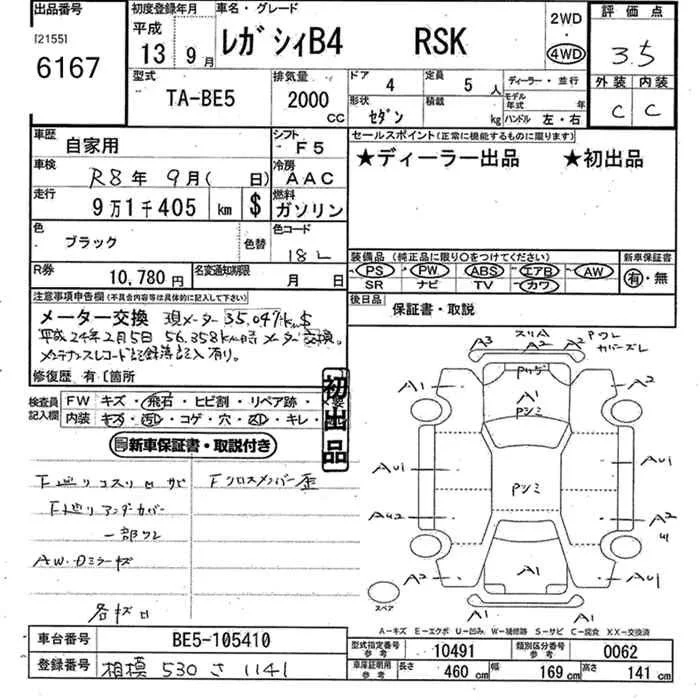 出品番号
[2155]
6167
初度登録年月
平成
13年 9月
車名・グレード
レガシィB4 RSK
2WD
・
4WD
評価点
3.5
外装 内装
C C
型式
TA-BE5
排気量
2000
CC
ドア 4
定員 5 人
形状 セダン
積載 kg
ディーラー・並行
モデル年式 年
ハンドル 左・右
車歴 自家用
シフト F5
車検 R8年 9月( 日)
冷房 AAC
走行 9万1千405 km $
燃料 ガソリン
色 ブラック
色替
色コード 18L
R券 10,780円
名変通知期限 月 日
セールスポイント(正常に機能するものに限ります)
★ディーラー出品 ★初出品
装備品(純正品に限り○をつけてください)
PS PW ABS エアB AW
SR ナビ TV カワ
新車保証書
有・無
後日品 保証書・取説
注意事項申告欄(不具合内容等は具体的に記入して下さい)
メーター交換 現メーター35,047km$
平成24年2月5日 56,358km時メーター交換。
メンテナンスレコード記録簿記入有り。
修復歴 有[箇所
検査員記入欄
FW キズ・飛石・ヒビ割・リペア跡・
内装 キズ・汚レ・コゲ・穴・凹・キレ・
初出品
新車保証書・取説付き
F廻リコスリ凹サビ Fクロスメンバー歪
F廻リアンダーカバー
一部ワレ
AW・Dミラーキズ
各キズ凹
A3 スリA A2 A2 Pワレカバーズレ
A1 A2
A1
Pシミ
AU1 AU1
Pシミ
AU2 A2
A2 AU1
A1
A1 A1
スペア
A-キズ E-エクボ U-凹み W-補修跡 S-サビ C-腐食 XX-交換済
車台番号 BE5-105410
登録番号 相模 530 さ 1141
型式指定番号 参考 10491
類別区分番号 参考 0062
車庫証明用 参考 長さ 460 cm 幅 169 cm 高さ 141 cm